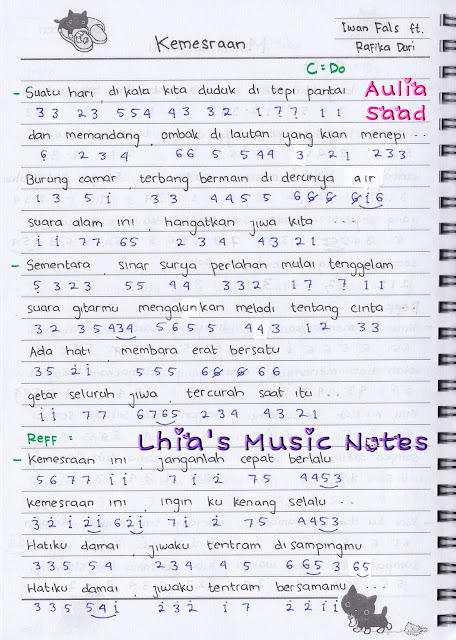 Kemesraan
Iwan Fals ft.
Rafika Duri
C = Do
Aulia
Saad
- Suatu hari, di kala kita duduk di tepi pantai
3 3 2 3 5 5 4 4 3 3 2 1 7̣ 7̣ 1 1
dan memandang, ombak di lautan yang kian menepi ..
6̣ 2 3 4 6 6 5 5 4 4 3 2 1 2 3 3
Burung camar, terbang bermain di derunya air
1 3 5 i 3 3 4 4 5 5 6 6 6 6 i 6
suara alam ini, hangatkan jiwa kita ...
i i 7 7 6 5 2 3 4 4 3 2 1
- Sementara, sinar surya perlahan mulai tenggelam
5̣ 3 2 3 5 5 4 4 3 3 2 1 7̣ 7̣ 1 1
suara gitarmu mengalunkan melodi tentang cinta ...
3 2 3 5 4 3 4 5 6 5 5 4 4 3 1 2 3 3
Ada hati, membara erat bersatu
3 5 2 i 5 5 5 6 6 6 6 6
getar seluruh jiwa, tercurah saat itu ...
i i 7 7 6 7 6 5 2 3 4 4 3 2 1
Reff :
Lhia's Music Notes
- Kemesraan ini, janganlah cepat berlalu
5 6 7 7 i i 7 i 2̇ 7 5 4 4 5 3
kemesraan ini, ingin ku kenang selalu ..
3̇ 2̇ i 2̇ i 6 2̇ i 7 i 2̇ 7 5 4 4 5 3
Hatiku damai, jiwaku tentram di sampingmu
3 3 5 5 4 2 3 4 4 5 6 6 5 3 6 5
Hatiku damai, jiwaku tentram bersamamu ...
3 3 5 5 4 i 2̇ 3̇ 2̇ i 7 2̇ 2̇ i i